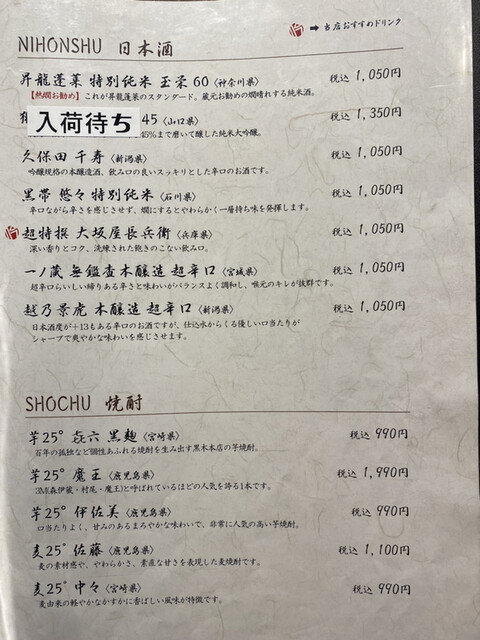 ➡ 当店おすすめドリンク
NIHONSHU 日本酒
昇龍蓬莱 特別純米 玉栄 60〈神奈川県〉 税込 1,050円
【熱燗お勧め】これが昇龍蓬莱のスタンダード。蔵元お勧めの燗晴れする純米酒。
入荷待ち 45〈山口県〉 税込 1,350円
45%まで磨いて醸した純米大吟醸。
久保田 千寿〈新潟県〉 税込 1,050円
吟醸規格の本醸造酒、飲み口の良いスッキリとした辛口のお酒です。
黒帯 悠々 特別純米〈石川県〉 税込 1,050円
辛口ながら辛さを感じさせず、燗にするとやわらかく一層持ち味を発揮します。
超特撰 大坂屋長兵衛〈兵庫県〉 税込 1,050円
深い香りとコク、洗練された飽きのこない飲み口。
一ノ蔵 無鑑査本醸造 超辛口〈宮城県〉 税込 1,050円
超辛口らしいしい締りある辛さと味わいがバランスよく調和し、喉元のキレが抜群です。
越乃景虎 本醸造 超辛口〈新潟県〉 税込 1,050円
日本酒度が+13もある辛口のお酒ですが、仕込水からくる優しい口当たりが
シャープで爽やかな味わいを感じさせます。
SHOCHU 焼酎
芋25° 㐂六 黒麹〈宮崎県〉 税込 990円
百年の孤独など個性あふれる焼酎を生み出す黒木本店の芋焼酎。
芋25° 魔王〈鹿児島県〉 税込 1,990円
3M(森伊蔵・村尾・魔王)と呼ばれているほどの人気を誇る1本です。
芋25° 伊佐美〈鹿児島県〉 税込 990円
口当たりよく、甘みのあるまろやかな味わいで、非常に人気の高い芋焼酎。
麦25° 佐藤〈鹿児島県〉 税込 1,100円
麦の素材感や、やわらかさ、素直な甘さを表現した麦焼酎です。
麦25° 中々〈宮崎県〉 税込 990円
麦由来の軽やかなかすかに香ばしい風味が特徴です。